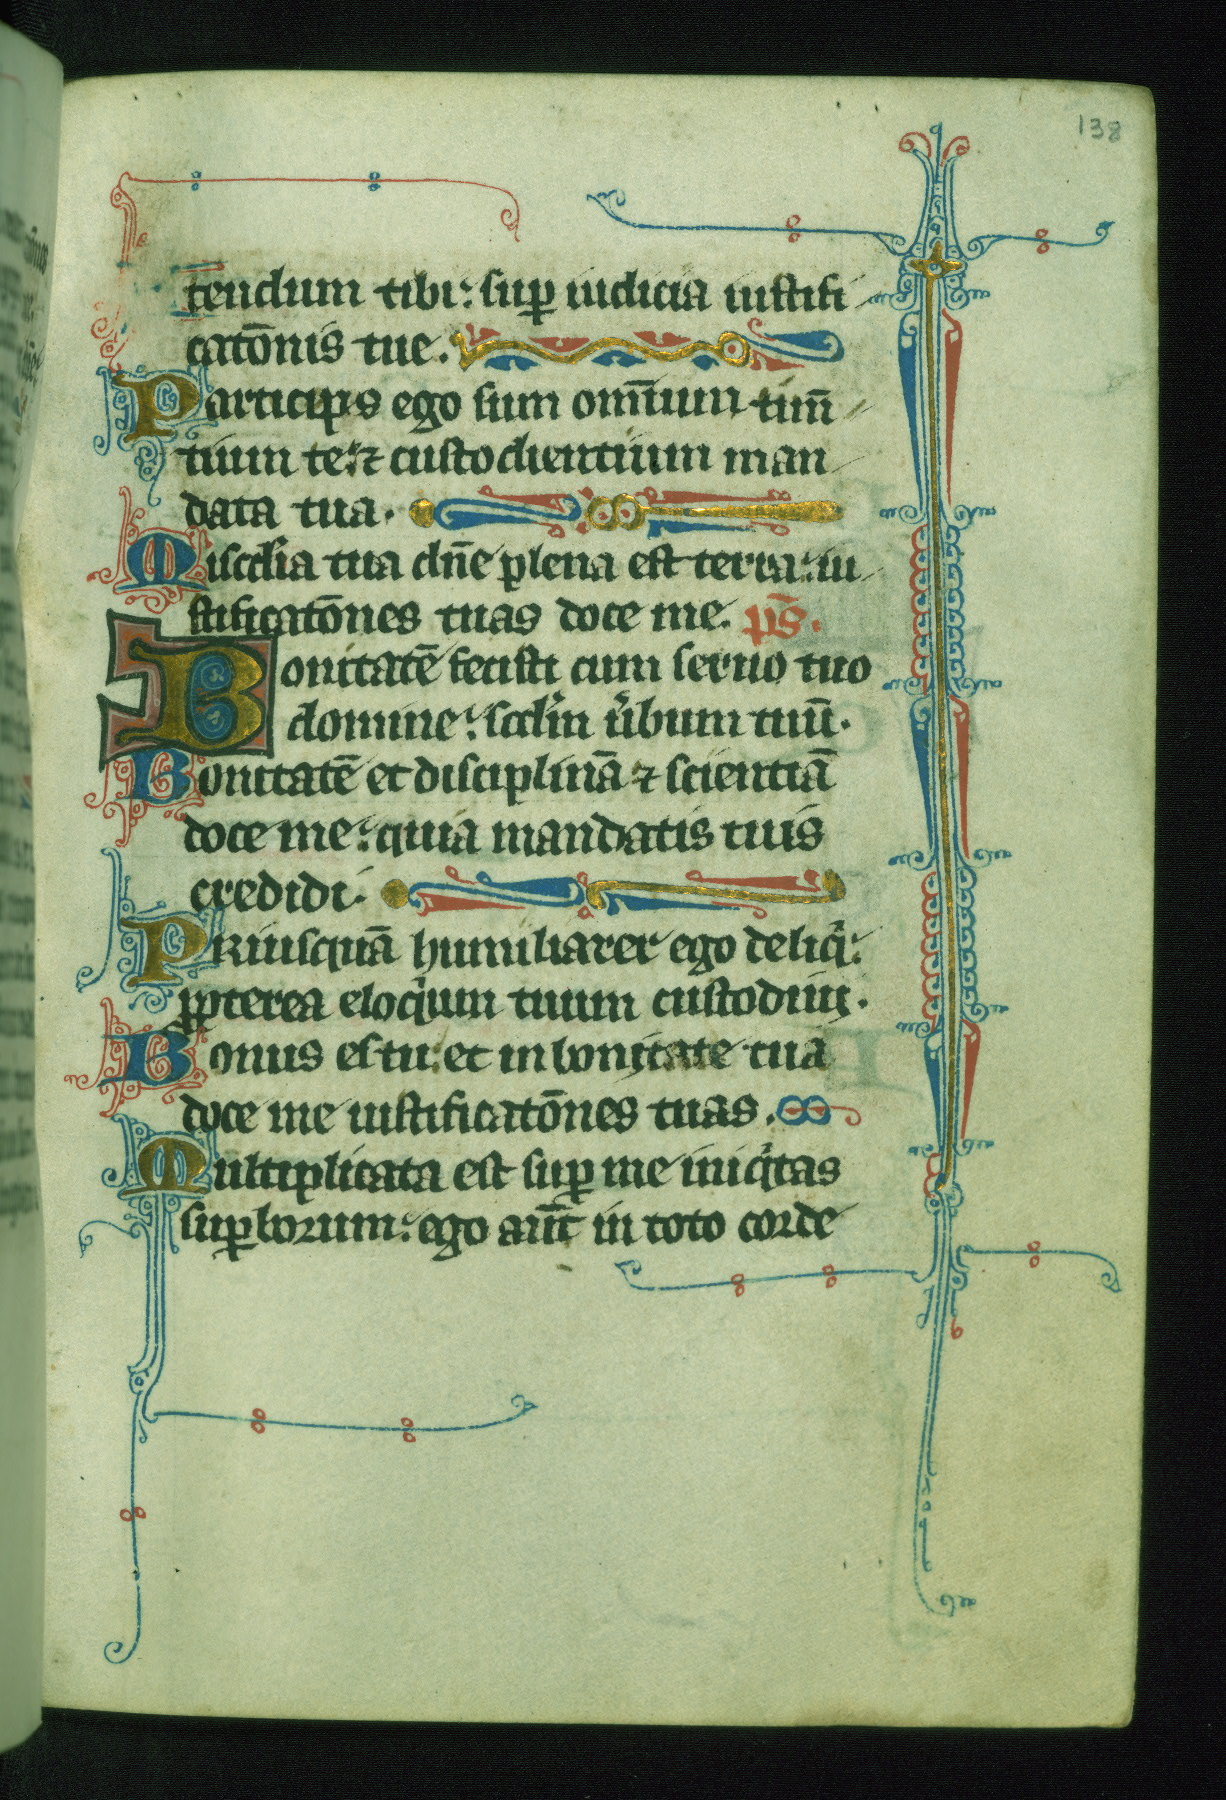 138
tendum tibi: sup̲ iudicia iustifi
catōnis tue.
Particips ego sum om̄ium tim̄
tium te: ⁊ custodientium man
data tua.
Misc̄dia tua dn̄e plena est terra: iu
stificatōnes tuas doce me. ps̄.
Bonitatē fecisti cum seruo tuo
domine: scd̄m u̓bum tuū.
Bonitatē et disciplinā ⁊ scientiā
doce me: quia mandatis tuis
credidi.
Priusquā humiliarer ego deliq̓:
ꝓpterea eloq̓um tuum custodiui.
Bonus es tu: et in bonitate tua
doce me iustificatōnes tuas.
Multiplicata est sup̲ me iniq̓tas
sup̲borum: ego aūt in toto corde